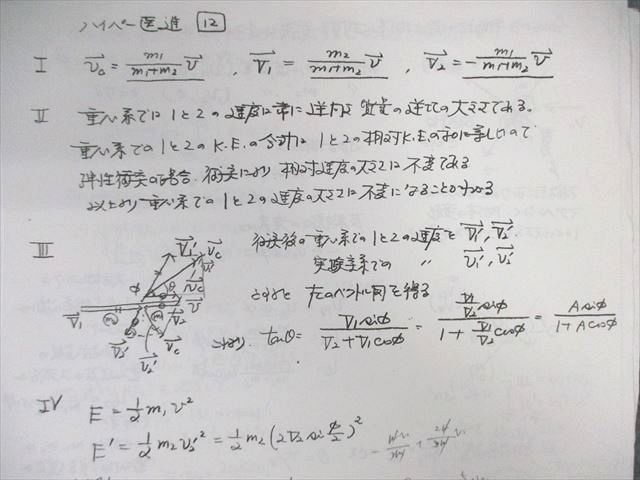 ハイパー医進 12
I $\vec{v_c} = \frac{m_1}{m_1+m_2}\vec{v}$ , $\vec{V_1} = \frac{m_2}{m_1+m_2}\vec{v}$ , $\vec{V_2} = -\frac{m_1}{m_1+m_2}\vec{v}$
II 重心系では1と2の速度は常に逆向き 質量の逆比の大きさである。
重心系での1と2のK.E.の合計は1と2の相対K.E.の和に等しいので
弾性衝突の場合、衝突により相対速度の大きさは不変である
以上より重心系での1と2の速度の大きさは不変になることがわかる
III 衝突後の重心系での1と2の速度を $\vec{V_1'}, \vec{V_2'}$
実験室系での 〃 $\vec{v_1'}, \vec{v_2'}$
とすると 左のベクトル図を得る
より $\tan\theta = \frac{V_1\sin\phi}{V_2+V_1\cos\phi} = \frac{\frac{V_1}{V_2}\sin\phi}{1+\frac{V_1}{V_2}\cos\phi} = \frac{A\sin\phi}{1+A\cos\phi}$
IV $E = \frac{1}{2}m_1v^2$
$E' = \frac{1}{2}m_2v_2'^2 = \frac{1}{2}m_2(2V_2\sin\frac{\phi}{2})^2$